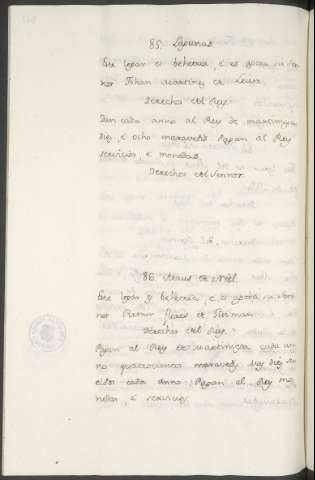 85. Lagunas
Este logar es behetria, e es agora su sen
nor Johan Martinez de Leiva.
Derechos del Rey.
Dan cada anno al Rey de martiniega
dies, e ocho maravedis Pagan al Rey
servicios, e monedas.
Derechos del sennor
86.
Este logar es behetria, e es agora su sen
nor
Derechos del Rey.
Pagan al Rey de martiniega cada an
no quatrocientos maravedis
cada anno Pagan al Rey mo
nedas, e servicios.